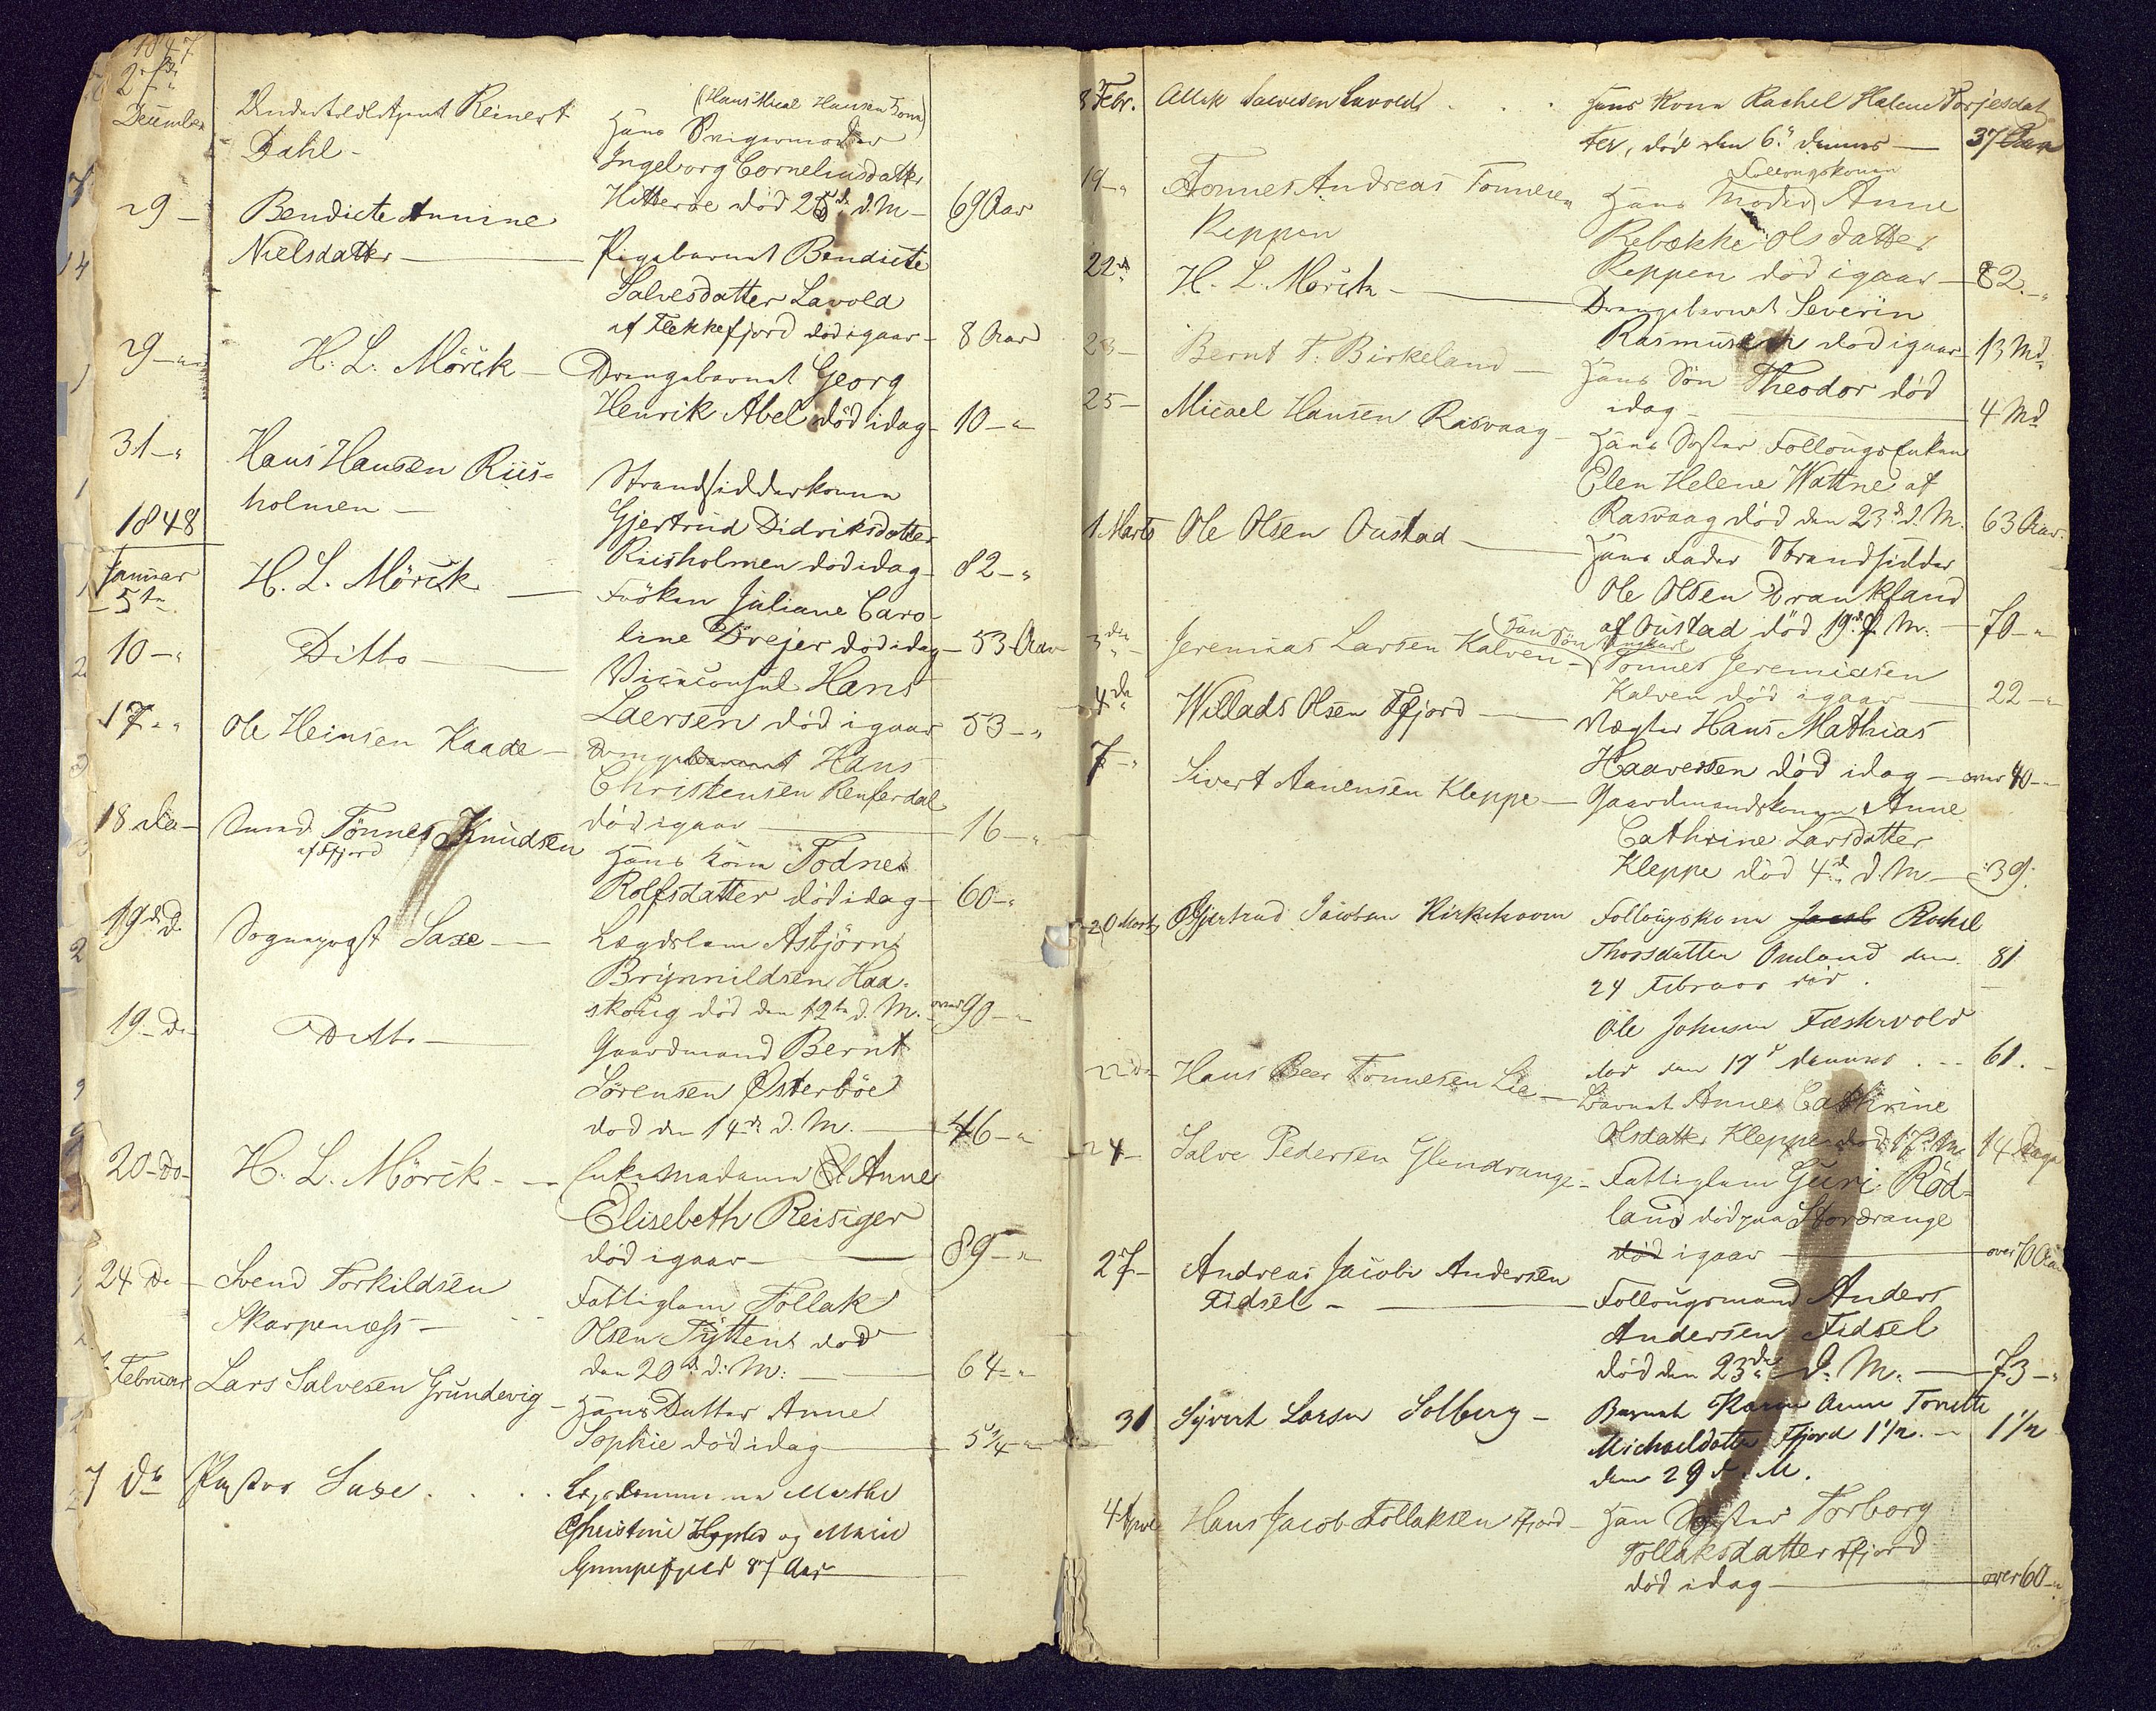 1847
27de
December
Undertoldbetjent Reinert
Dahl -
(Hans Mical Hansen Kone)
Hans Svigermoder
Ingeborg Corneliusdatter
Hitterøe død 25de d. M - 69 Aar
29 - Bendicte Annine
Nielsdatter - Pigebarnet Bendicte
Salvesdatter Lavold
af Flekkefjord død igaar - 8 Aar
29 - " H. L. Mörck - Drengebarnet Georg
Henrik Abel død idag - 10 - "
31 - " Hans Hansen Riis-
holmen - Strandsidderkonen
Gjertrud Didriksdatter
Riisholmen død idag - 82 - "
1848
Januar
5te H. L. Mörck - Fröken Juliane Caro-
line Drejer död idag - 53 Aar
10 - " Ditto - Viceconsul Hans
Laersen död igaar 53 - "
17 - " Ole Heinsen Kaade - Drengebarnet Hans
Christensen Renferdal
död igaar - 16 - "
18 do - Smed Tönnes Knudsen
af Ffjord
Hans Kone Todne
Rolfsdatter död idag - 60 - "
19 do Sognepræst Saxe - Lægdslem Asbjörn
Brÿnnildsen Haa-
skoug död den 12te d. M. over 90 - "
19 - do Ditto - Gaardmand Bernt
Sörensen Østerböe
død den 14de d. M. - 46 - "
20 - do - H. L. Mörck - Enkemadame Anne
Elisebeth Reisiger
död igaar - 89 - "
24 do - Svend Torkildsen
Skarpenæss - Fattiglem Tollak
Olsen Tÿttent död
den 20de d. M: - 64 - "
Februar Lars Salvesen Grundevig - Hans Datter Anne
Sophie död idag - 5 1/4 - "
7 do Pastor Saxe . . . Marthe
Christine og Marie
87 Aar
8 Febr. Allik Salvesen Lavold . . . Hans Kone Rachel Helene Torjesdat
ter, død den 6" dennes - 37 Aar
19 - " Tonnes Andreas Tonnesen
Reppen
Follougskonen
Hans Moder Anne
Rebekke Olsdatter
Reppen död igaar - 82 - "
22de H. L. Mörch - Drengebarnet Severin
Rasmusen död igaar - 13 Md.
23 - Bernt T. Birkeland - Hans Sön Theodor död
idag - 4 Md
25 - Micael Hansen Rasvaag - Hans Søster Follougsenken
Elen Helene Wattne af
Rasvaag död den 23de d. M. 63 Aar.
1 Marts Ole Olsen Oustad - Hans Fader Strandsidder
Ole Olsen Drankfand
af Oustad död 19de f. M. - 70 - "
3die - Jeremias Larsen Kalven - Hans Sön Ungkarl
Tonnes Jeremiasen
Kalven död igaar - 22 - "
4de Willads Olsen Ffjord - Slegter Hans Mathias
Haavessen död idag - over 40 - "
7 - " Sivert Aanensen Kleppe - Gaardmandskonen Anne
Cathrine Larsdatter
Kleppe död 4de d. M - 39.
20 Marts Gjertrud Jacobsen Kirkehavn Follougskone Jacob Rachel
Thorsdatter Omland den 81
24 Februar død .
Ole Johnsen Fæskevold
død den 17de dennes . - 61 . -
22 do Hans Beer Tönnesen Lie - Barnet Anne Cathrine
Olsdatter Kleppe død 17de d. M. 14 Dage
24 - Salve Pedersen Glendrange - Fattiglem Guri Röd-
land død paa Stordrange
död igaar - over 70 Aar
27 - Andreas Jacob Andersen
Fidsel - Follougsmand Anders
Andersen Fidsel
död den 23de d. M. - 73 - "
31 Sÿvert Larsen Solberg - Barnet Karen Anne Tonette
Michaelsdatter Ffjord 1 1/2. - 1 1/2
den 29 d. M.
4 April Hans Jacob Tollaksen Ffjord - Hans Søster Torborg
Tollaksdatter Ffjord
död idag - over 60 - "